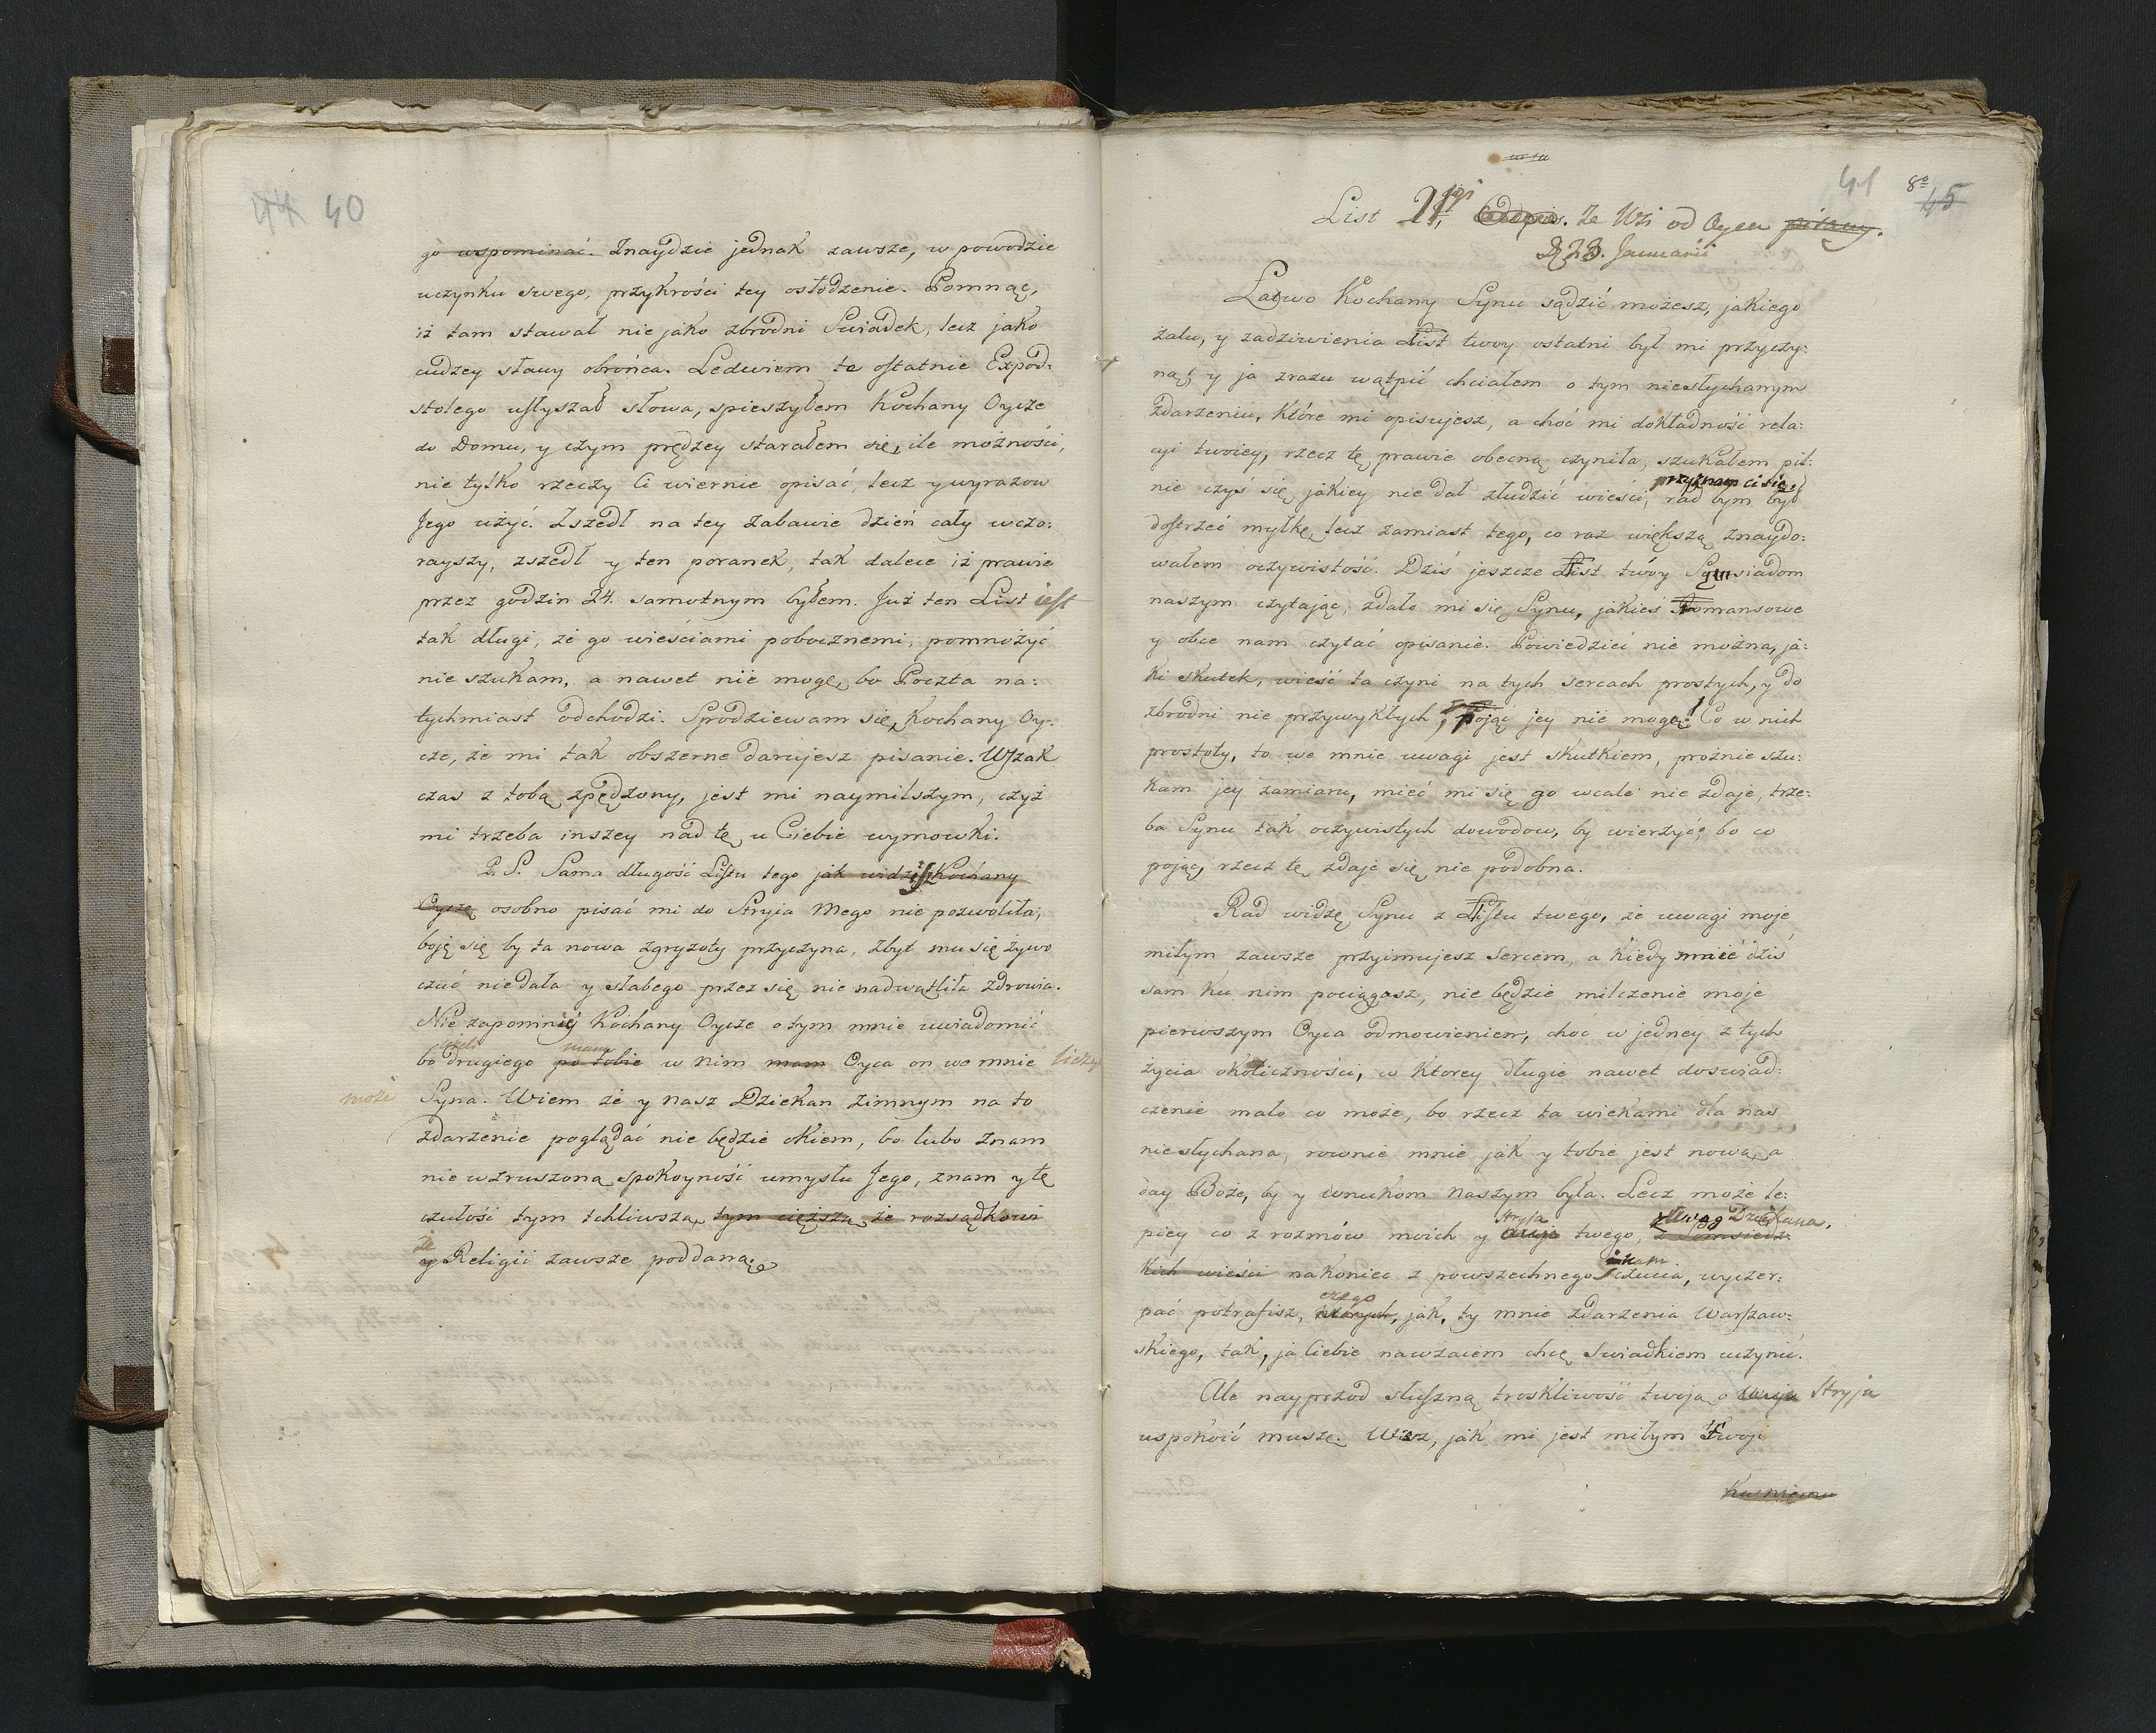 44 40
go wspominać. Znaydzie jednak zawsze, w powodzie
uczynku swego, przykrości tey osłodzenie. Pomnąc,
iż tam stawał nie jako zbrodni Swiadek, lecz jako
cudzey sławy obrońca. Ledwiem te ostatnie Expod:
stolego usłyszał słowa, spieszyłem Kochany Oycze
do Domu, y czym prędzey starałem się, ile możności,
nie tylko rzeczy Ci wiernie opisać, lecz y wyrazow
Jego użyć. Zszedł na tey zabawie dzień cały wczo:
rayszy, zszedł y ten poranek, tak dalece iż prawie
przez godzin 24. samotnym byłem. Już ten List iest
tak długi, że go wieściami pobocznemi, pomnożyć
nie szukam, a nawet nie mogę, bo Poczta na:
tychmiast odchodzi. Spodziewam się, Kochany Oy:
cze, że mi tak obszerne darujesz pisanie. Wszak
czas z tobą zpędzony, jest mi naymilszym, czyż
mi trzeba inszey nad tę u Ciebie wymowki.
P. S. Sama długość Listu tego jak widzisz Kochany
Oycze osobno pisać mi do Stryia Mego nie pozwoliła,
boję się by ta nowa zgryzoty przyczyna, zbyt mu się żywo
czuć niedała y słabego przez się nie nadwątliła zdrowia.
Nie zapominiy Kochany Oycze o tym mnie uwiadomić
mam
bo drugiego po tobie w nim mam Oyca on we mnie liczy
może Syna. Wiem że y nasz Dziekan zimnym na to
zdarzenie poglądać nie będzie okiem, bo lubo znam
niewzruszoną spokoyność umysłu Jego, znam y tę
czułość tym tchliwszą, tym cięższą, że rozsądkowi
że
y Religii zawsze poddaną
41 8º 45
List Odpis. Ze Wsi od Oyca pisany.
D 23. Januarii
Łatwo Kochany Synu sądzić możesz, jakiego
żalu, y zadziwienia List twoy ostatni był mi przyczy:
ną, y ja zrazu wątpić chciałem o tym niesłychanym
zdarzeniu, które mi opisujesz, a choć mi dokładność rela:
cyi twoiey, rzecz tę prawie obecną czyniła, szukałem pil:
przyznam ci się,
nie czyś się jakiey nie dał złudzić wieści, rad bym był
dostrzec myłkę, lecz zamiast tego, co raz większą znaydo:
wałem oczywistość. Dziś jeszcze List twóy Sąsiadom
naszym czytając, zdało mi się Synu, jakieś Romansowe
y obce nam czytać opisanie. Powiedzieć nie można, ja:
ki skutek, wieść ta czyni na tych sercach prostych, y do
zbrodni nie przywykłych, pojąć jey nie mogą! Co w nich
prostoty, to we mnie uwagi jest skutkiem, prożnie szu:
kam jey zamiaru, mieć mi się go wcale nie zdaje, trze:
ba Synu tak oczywistych dowodow, by wierzyć, bo co
pojąć, rzecz tę zdaje się nie podobna.
Rad widzę Synu z Listu twego, że uwagi moje
miłym zawsze przyimujesz sercem, a kiedy mnie dziś
sam ku nim pociągasz, nie będzie milczenie moje
pierwszym Oyca odmowieniem, choć w jedney z tych
życia okoliczności, w ktorey długie nawet doswiad:
czenie mało co może, bo rzecz ta wiekami dla nas
niesłychana, rownie mnie jak y tobie jest nowa, a
day Boże, by y wnukom naszym była. Lecz może le:
Stryja z Uwag Dziekana,
piey co z rozmów moich y wuja twego, z Somsiedz:
kich wieści nakoniec z powszechnego czucia, wyczer:
czego
pać potrafisz, ktorych, jak, ty mnie zdarzenia Warszaw:
skiego, tak, ja Ciebie nawzaiem chcę Swiadkiem uczynić.
Ale nayprzod słuszną troskliwość twoją o wuja Stryja
uspokoić muszę. Wiesz, jak mi jest miłym Twoj